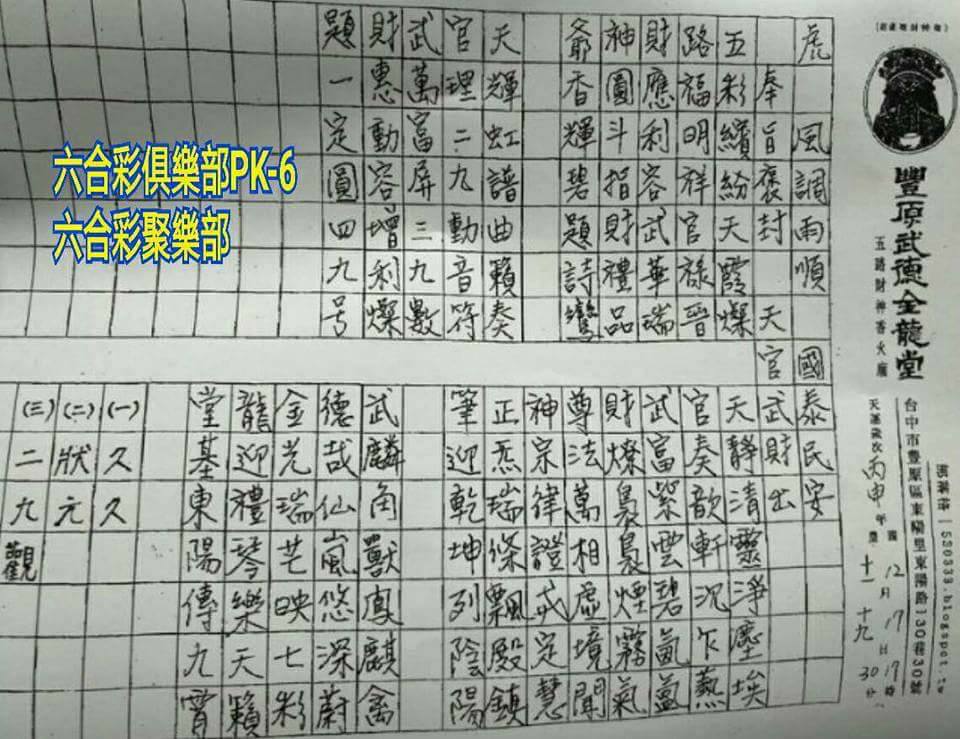 六合彩俱樂部PK-6
六合彩聚樂部
豐原武德金龍堂
五路財神香火廟
台中市豐原區東陽里東陽路130巷30號
530333.blogspot.tw
天運歲次丙申年農十一十九
國12月17日17時30分
虎風調雨順國泰民安
奉旨褒封天官武財出
五彩繽紛天霞燦
路福明祥官祿晉
財應利容武華瑞
神圓斗指財禮品
爺香輝碧題詩鸞
天輝虹譜曲籟奏
官理二九動音符
武萬富屏三九數
財惠動容增利燦
題一定圓四九号
天靜清靈淨塵埃
官奏歆軒沉乍熱
武富紫雲碧氤氳
財燦裊裊煙霧氣
尊法萬相虛境聞
神宗律證戒定慧
正炁瑞條飄殿鎮
筆迎乾坤列陰陽
武麟角獸鳳麒禽
德哉仙嵐悠深蔚
金光瑞芒映七彩
龍迎禮琴樂天籟
堂基東陽傳九霄
(一)久久
(二)狀元
(三)二九觀